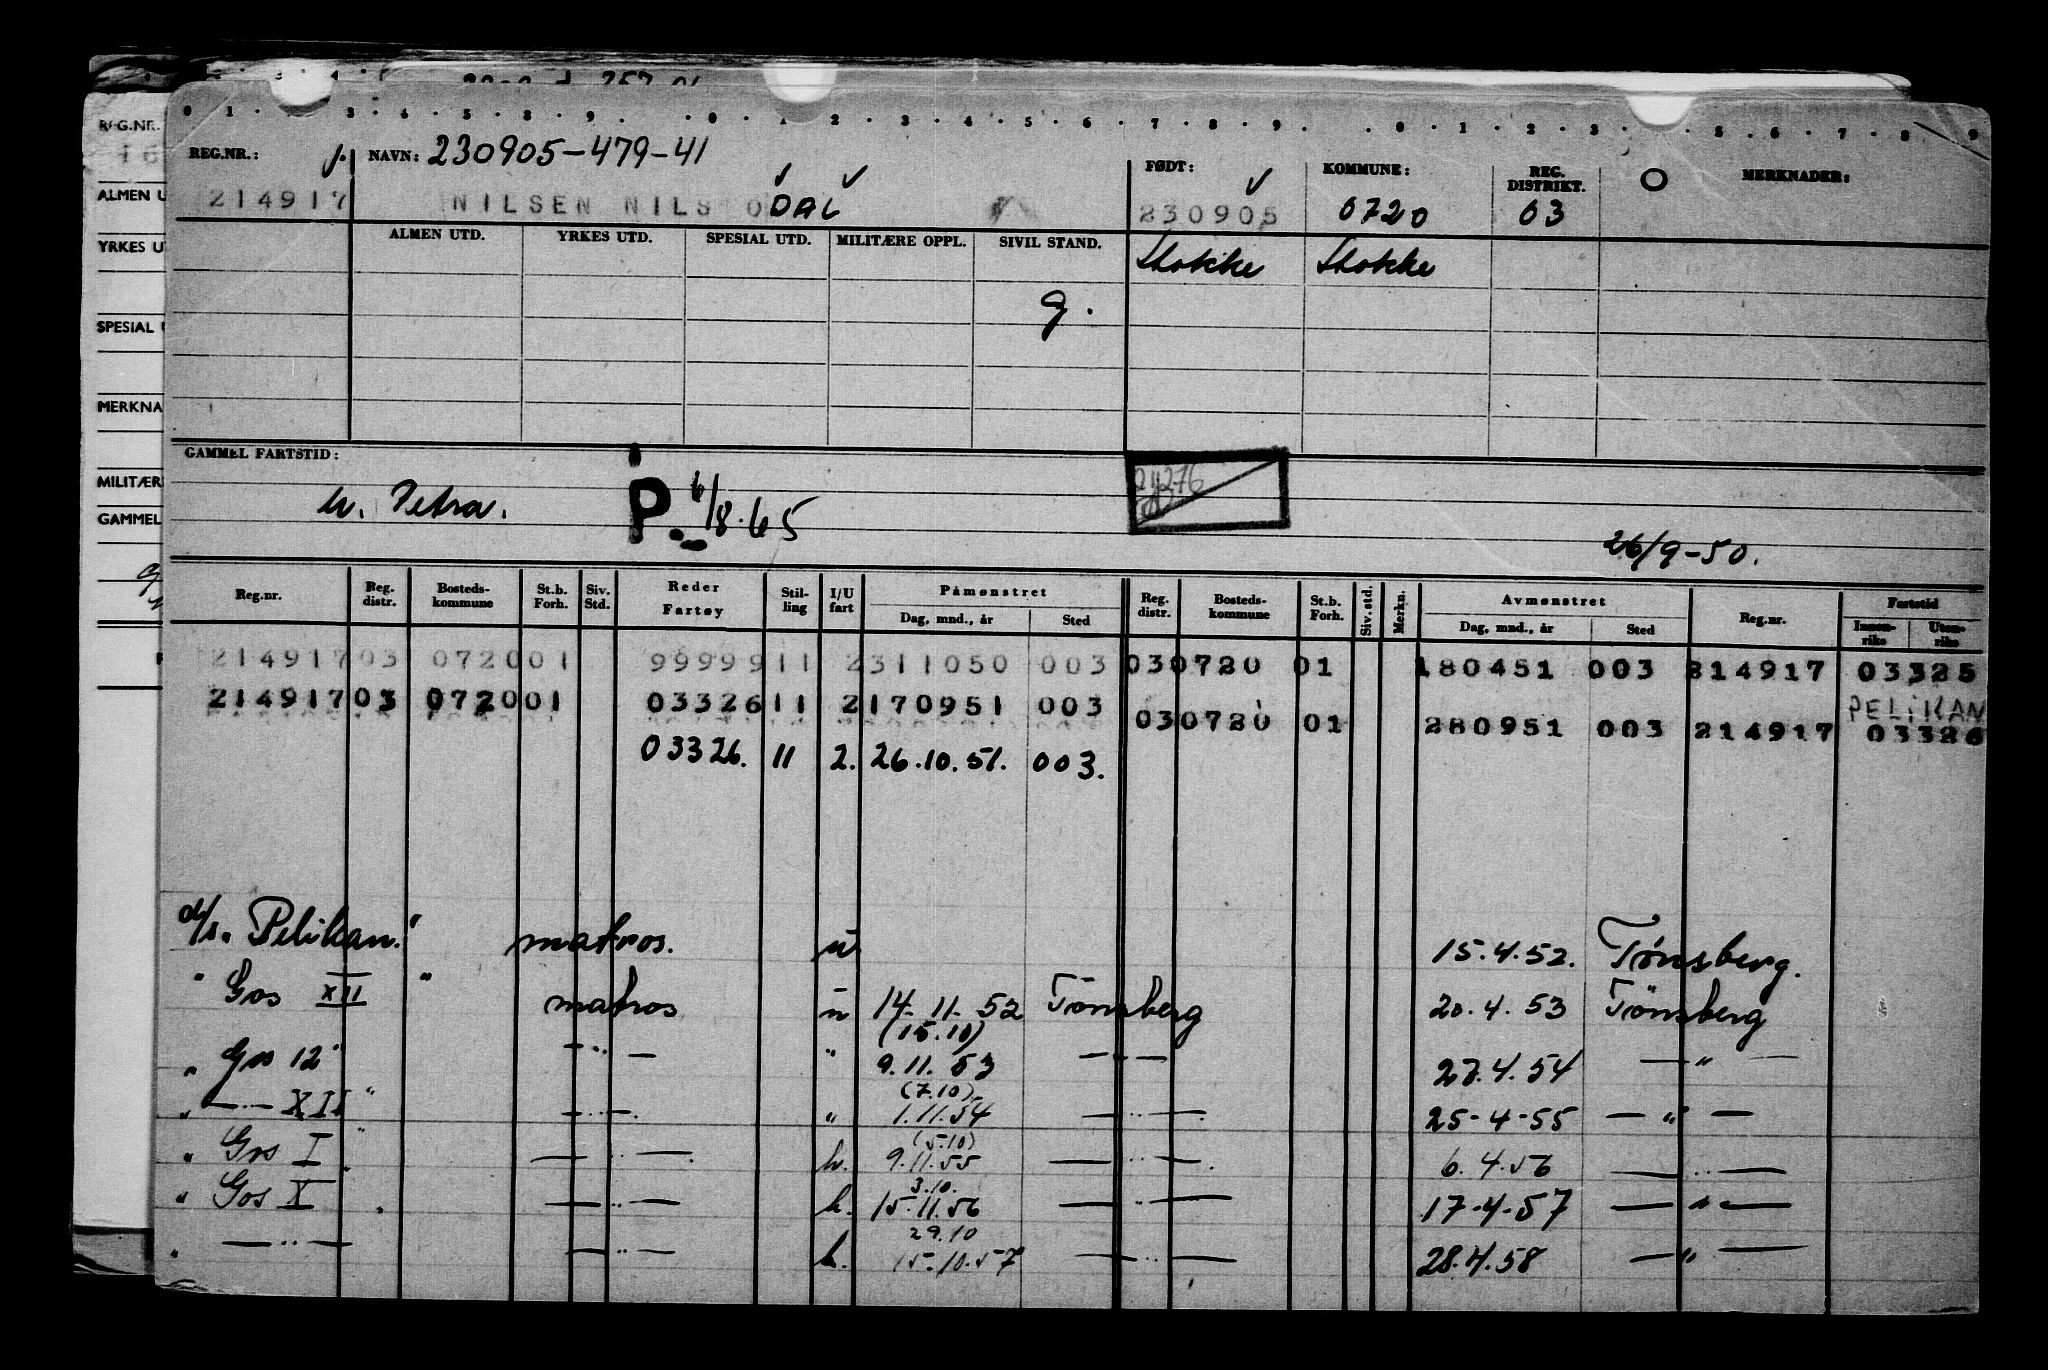 0 1 . . 3 . 4 . 5 . 8 . 9 . . 0 . 1 . 2 . 3 . 4 . 5 . 6 . 7 . 8 . 9 . . 0 . 1 . 2 . 3 . . 5 . 6 . 7 . 8 . 9
REG.NR.
ALMEN U
YRKES U
SPESIAL U
MERKNA
MILITÆR
GAMMEL
REG.NR.: NAVN: 230905-479-41 FØDT: KOMMUNE: REG. DISTRIKT. MERKNADER:
214917 NILSEN NILS ODAL 230905 0720 03
ALMEN UTD. YRKES UTD. SPESIAL UTD. MILITÆRE OPPL. SIVIL STAND. Stokke Stokke
g.
GAMMEL FARTSTID:
u. Petra. P. 6/8.65 211276
26/9-50.
Reg.nr. Reg. distr. Bosteds-kommune St.b. Forh. Siv. Std. Reder Fartøy Stil-ling I/U fart Påmønstret Dag, mnd., år Sted Reg. distr. Bosteds-kommune St.b. Forh. Siv. std. Merkn. Avmønstret Dag, mnd., år Sted Reg.nr. Fartstid Innen-riks Uten-riks
214917 03 0720 01 99999 11 2 311050 003 03 0720 01 180451 003 214917 03325
PELIKAN
214917 03 0720 01 03326 11 2 170951 003 03 0720 01 280951 003 214917 03326
03326. 11 2. 26.10.51. 003.
d/s. Pelikan." matros. u 15.4.52. Tønsberg.
" Gos XII " matros u 14.11.52 Tønsberg 20.4.53 Tønsberg
(15.10)
" Gos 12" — " — " 9.11.53 — " — 27.4.54 — " —
(7.10)
" — " — XII " — " — " 1.11.54 — " — 25-4-55 — " —
(5.10)
" Gos I " — " — h. 9.11.55 — " — 6.4.56 — " —
3.10.
" Gos X " — " — h. 15.11.56 — " — 17.4.57 — " —
29.10
" — " — — " — h. 15.10.57 — " — 28.4.58 — " —